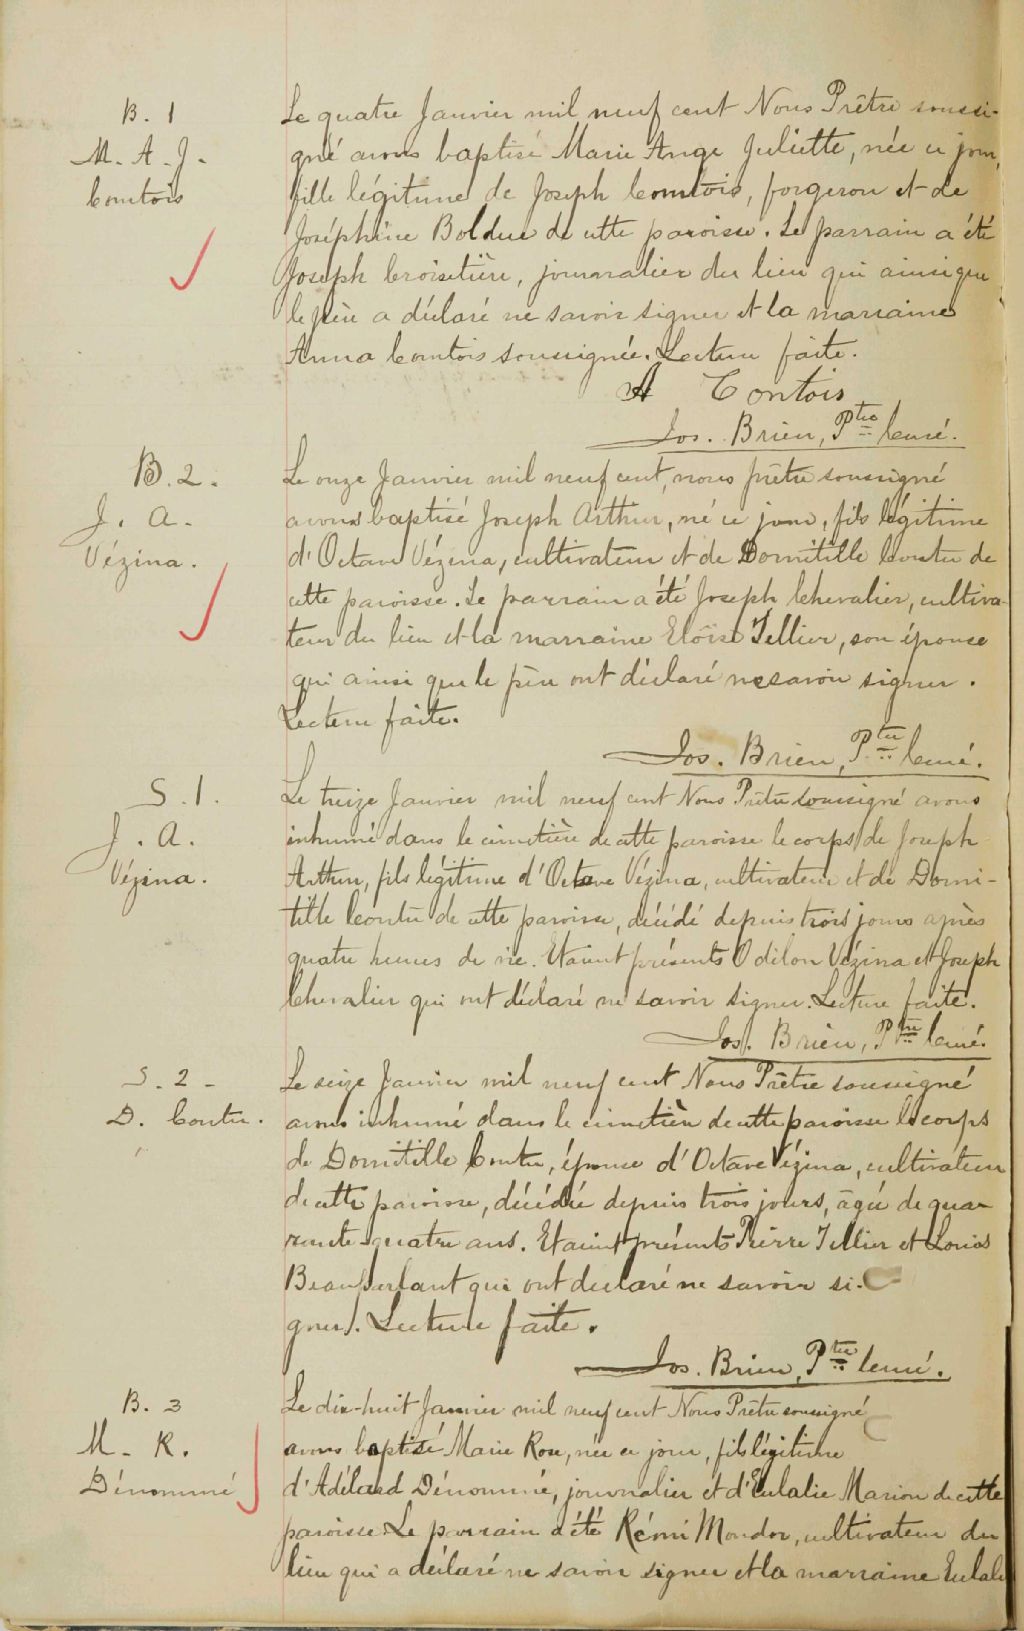 B. 1
M. A. J.
Comtois
Le quatre Janvier mil neuf cent Nous Prêtre soussi-
gné avons baptisé Marie Ange Juliette, née ce jour,
fille légitime de Joseph Comtois, forgeron et de
Joséphine Bolduc de cette paroisse. Le parrain a été
Joseph Croisetière, journalier du lieu qui ainsi que
le père a déclaré ne savoir signer et la marraine
Anna Comtois soussignée. Lecture faite.
A Contois
Jos. Brien, Ptre Curé.
B. 2.
J. A.
Vézina.
Le onze Janvier mil neuf cent, nous prêtre soussigné
avons baptisé Joseph Arthur, né ce jour, fils légitime
d'Octave Vézina, cultivateur et de Domitille Coutu de
cette paroisse. Le parrain a été Joseph Chevalier, cultiva-
teur du lieu et la marraine Eloïse Tellier, son épouse
qui ainsi que le père ont déclaré ne savoir signer.
Lecture faite.
Jos. Brien, Ptre Curé.
S. 1.
J. A.
Vézina.
Le treize Janvier mil neuf cent Nous Prêtre soussigné avons
inhumé dans le cimetière de cette paroisse le corps de Joseph
Arthur, fils légitime d'Octave Vézina, cultivateur et de Domi-
tille Coutu de cette paroisse, décédé depuis trois jours après
quatre heures de vie. Etaient présents Odilon Vézina et Joseph
Chevalier qui ont déclaré ne savoir signer. Lecture faite.
Jos. Brien, Ptre Curé.
S. 2 -
D. Coutu.
Le seize Janvier mil neuf cent Nous Prêtre soussigné
avons inhumé dans le cimetière de cette paroisse le corps
de Domitille Coutu, épouse d'Octave Vézina, cultivateur
de cette paroisse, décédée depuis trois jours, âgée de qua-
rante-quatre ans. Etaient présents Pierre Tellier et Louis
Beauparlant qui ont declaré ne savoir si-
gner. Lecture faite.
Jos. Brien, Ptre Curé.
B. 3
M. R.
Dénommé
Le dix-huit Janvier mil neuf cent Nous Prêtre soussigné
avons baptisé Marie Rose, née ce jour, fils légitime
d'Adélard Dénommé, journalier et d'Eulalie Marion de cette
paroisse. Le parrain a été Rémi Mondor, cultivateur du
lieu qui a déclaré ne savoir signer et la marraine Eulalie